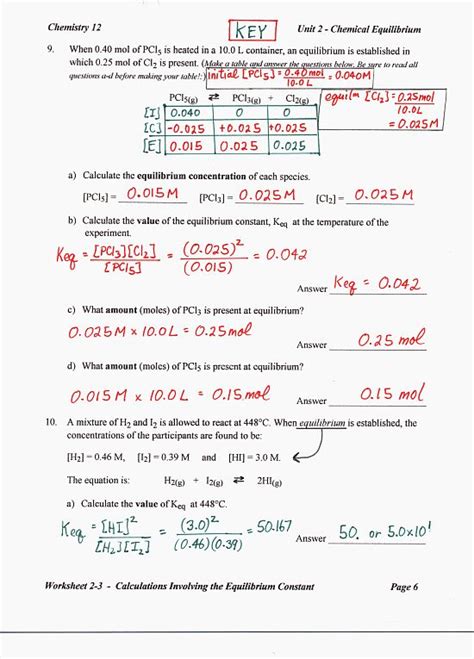 Chemistry 12 KEY Unit 2 - Chemical Equilibrium
9. When 0.40 mol of PCl₅ is heated in a 10.0 L container, an equilibrium is established in
which 0.25 mol of Cl₂ is present. (Make a table and answer the questions below. Be sure to read all
questions a-d before making your table!:) initial [PCl₅] = 0.40 mol / 10.0 L = 0.040M
PCl₅(g) ⇄ PCl₃(g) + Cl₂(g) equilm [Cl₂] = 0.25 mol / 10.0 L
[I] 0.040 0 0
[C] -0.025 +0.025 +0.025 = 0.025 M
[E] 0.015 0.025 0.025
a) Calculate the equilibrium concentration of each species.
[PCl₅] = 0.015 M [PCl₃] = 0.025 M [Cl₂] = 0.025 M
b) Calculate the value of the equilibrium constant, Keq at the temperature of the
experiment.
Keq = [PCl₃][Cl₂] / [PCl₅] = (0.025)² / (0.015) = 0.042
Answer Keq = 0.042
c) What amount (moles) of PCl₃ is present at equilibrium?
0.025 M × 10.0 L = 0.25 mol
Answer 0.25 mol
d) What amount (moles) of PCl₅ is present at equilibrium?
0.015 M × 10.0 L = 0.15 mol Answer 0.15 mol
10. A mixture of H₂ and I₂ is allowed to react at 448°C. When equilibrium is established, the
concentrations of the participants are found to be:
[H₂] = 0.46 M, [I₂] = 0.39 M and [HI] = 3.0 M.
The equation is: H₂(g) + I₂(g) ⇄ 2HI(g)
a) Calculate the value of Keq at 448°C.
Keq = [HI]² / [H₂][I₂] = (3.0)² / (0.46)(0.39) = 50.167 Answer 50. or 5.0×10¹
Worksheet 2-3 - Calculations Involving the Equilibrium Constant Page 6